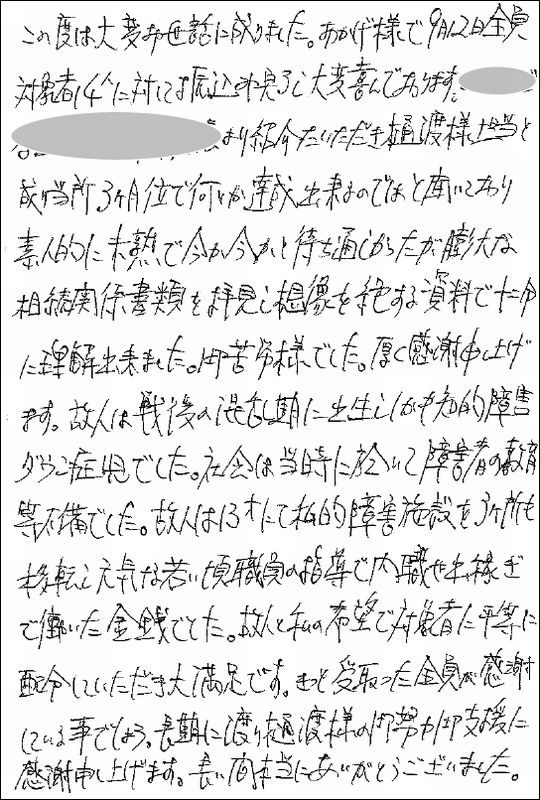 この度は大変お世話に成りました。おかげ様で9月12日全員
対象者14人に対しては振込が完了し大変喜んでおります。
より紹介をいただき樋渡様と担当と
成り当所3ヶ月位で何とか達成出来るのではと聞いており
素人的に未熟で今か今かと待ち通しかったが膨大な
相続関係書類を拝見し想像を絶する資料で十二分
に理解出来ました。御苦労様でした。厚く感謝申し上げ
ます。故人は戦後の混乱期に出生ししかも知的障害
ダウン症児でした。社会は当時に於いて障害者の教育
等不備でした。故人は13才にて知的障害施設を3ヶ所も
移転し元気な若い頃職員の指導で内職や出稼ぎ
で働いた金銭でした。故人と私の希望で対象者に平等に
配分していただき大満足です。きっと受取った全員が感謝
している事でしょう。長期に渡り樋渡様の御努力御支援に
感謝申し上げます。長い間本当にありがとうございました。